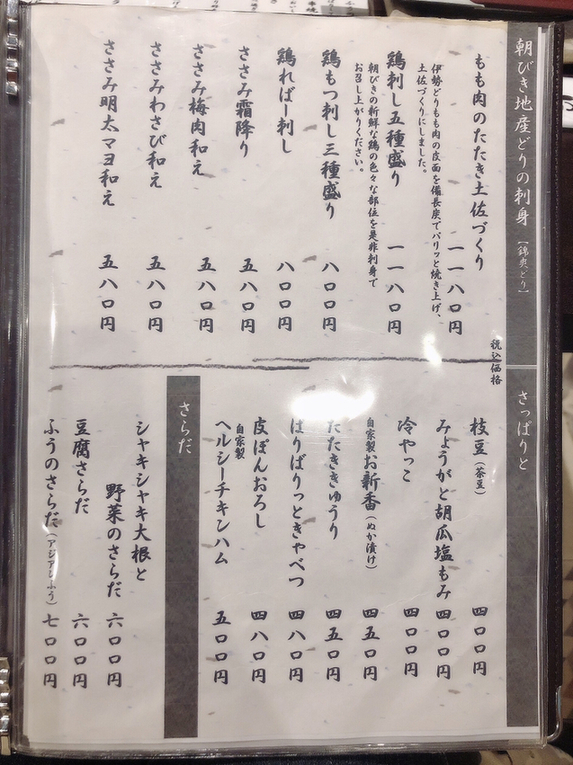 朝びき地産どりの刺身【錦爽どり】
もも肉のたたき土佐づくり 一一八〇円
伊勢どりもも肉の皮面を備長炭でパリッと焼き上げ、
土佐づくりにしました。
鶏刺し五種盛り 一一八〇円
朝びきの新鮮な鶏の色々な部位を是非刺身で
お召し上がりください。
鶏もつ刺し三種盛り 八〇〇円
鶏ればー刺し 八〇〇円
ささみ霜降り 五八〇円
ささみ梅肉和え 五八〇円
ささみわさび和え 五八〇円
ささみ明太マヨ和え 五八〇円
税込価格
さっぱりと
枝豆(茶豆) 四〇〇円
みょうがと胡瓜塩もみ 四〇〇円
冷やっこ 四〇〇円
自家製お新香(ぬか漬け) 四五〇円
たたききゅうり 四五〇円
ばりばりっときゃべつ 四八〇円
皮ぽんおろし 四八〇円
自家製
ヘルシーチキンハム 五〇〇円
さらだ
シャキシャキ大根と
野菜のさらだ 六〇〇円
豆腐さらだ 六〇〇円
ふうのさらだ(アジアンふう) 七〇〇円